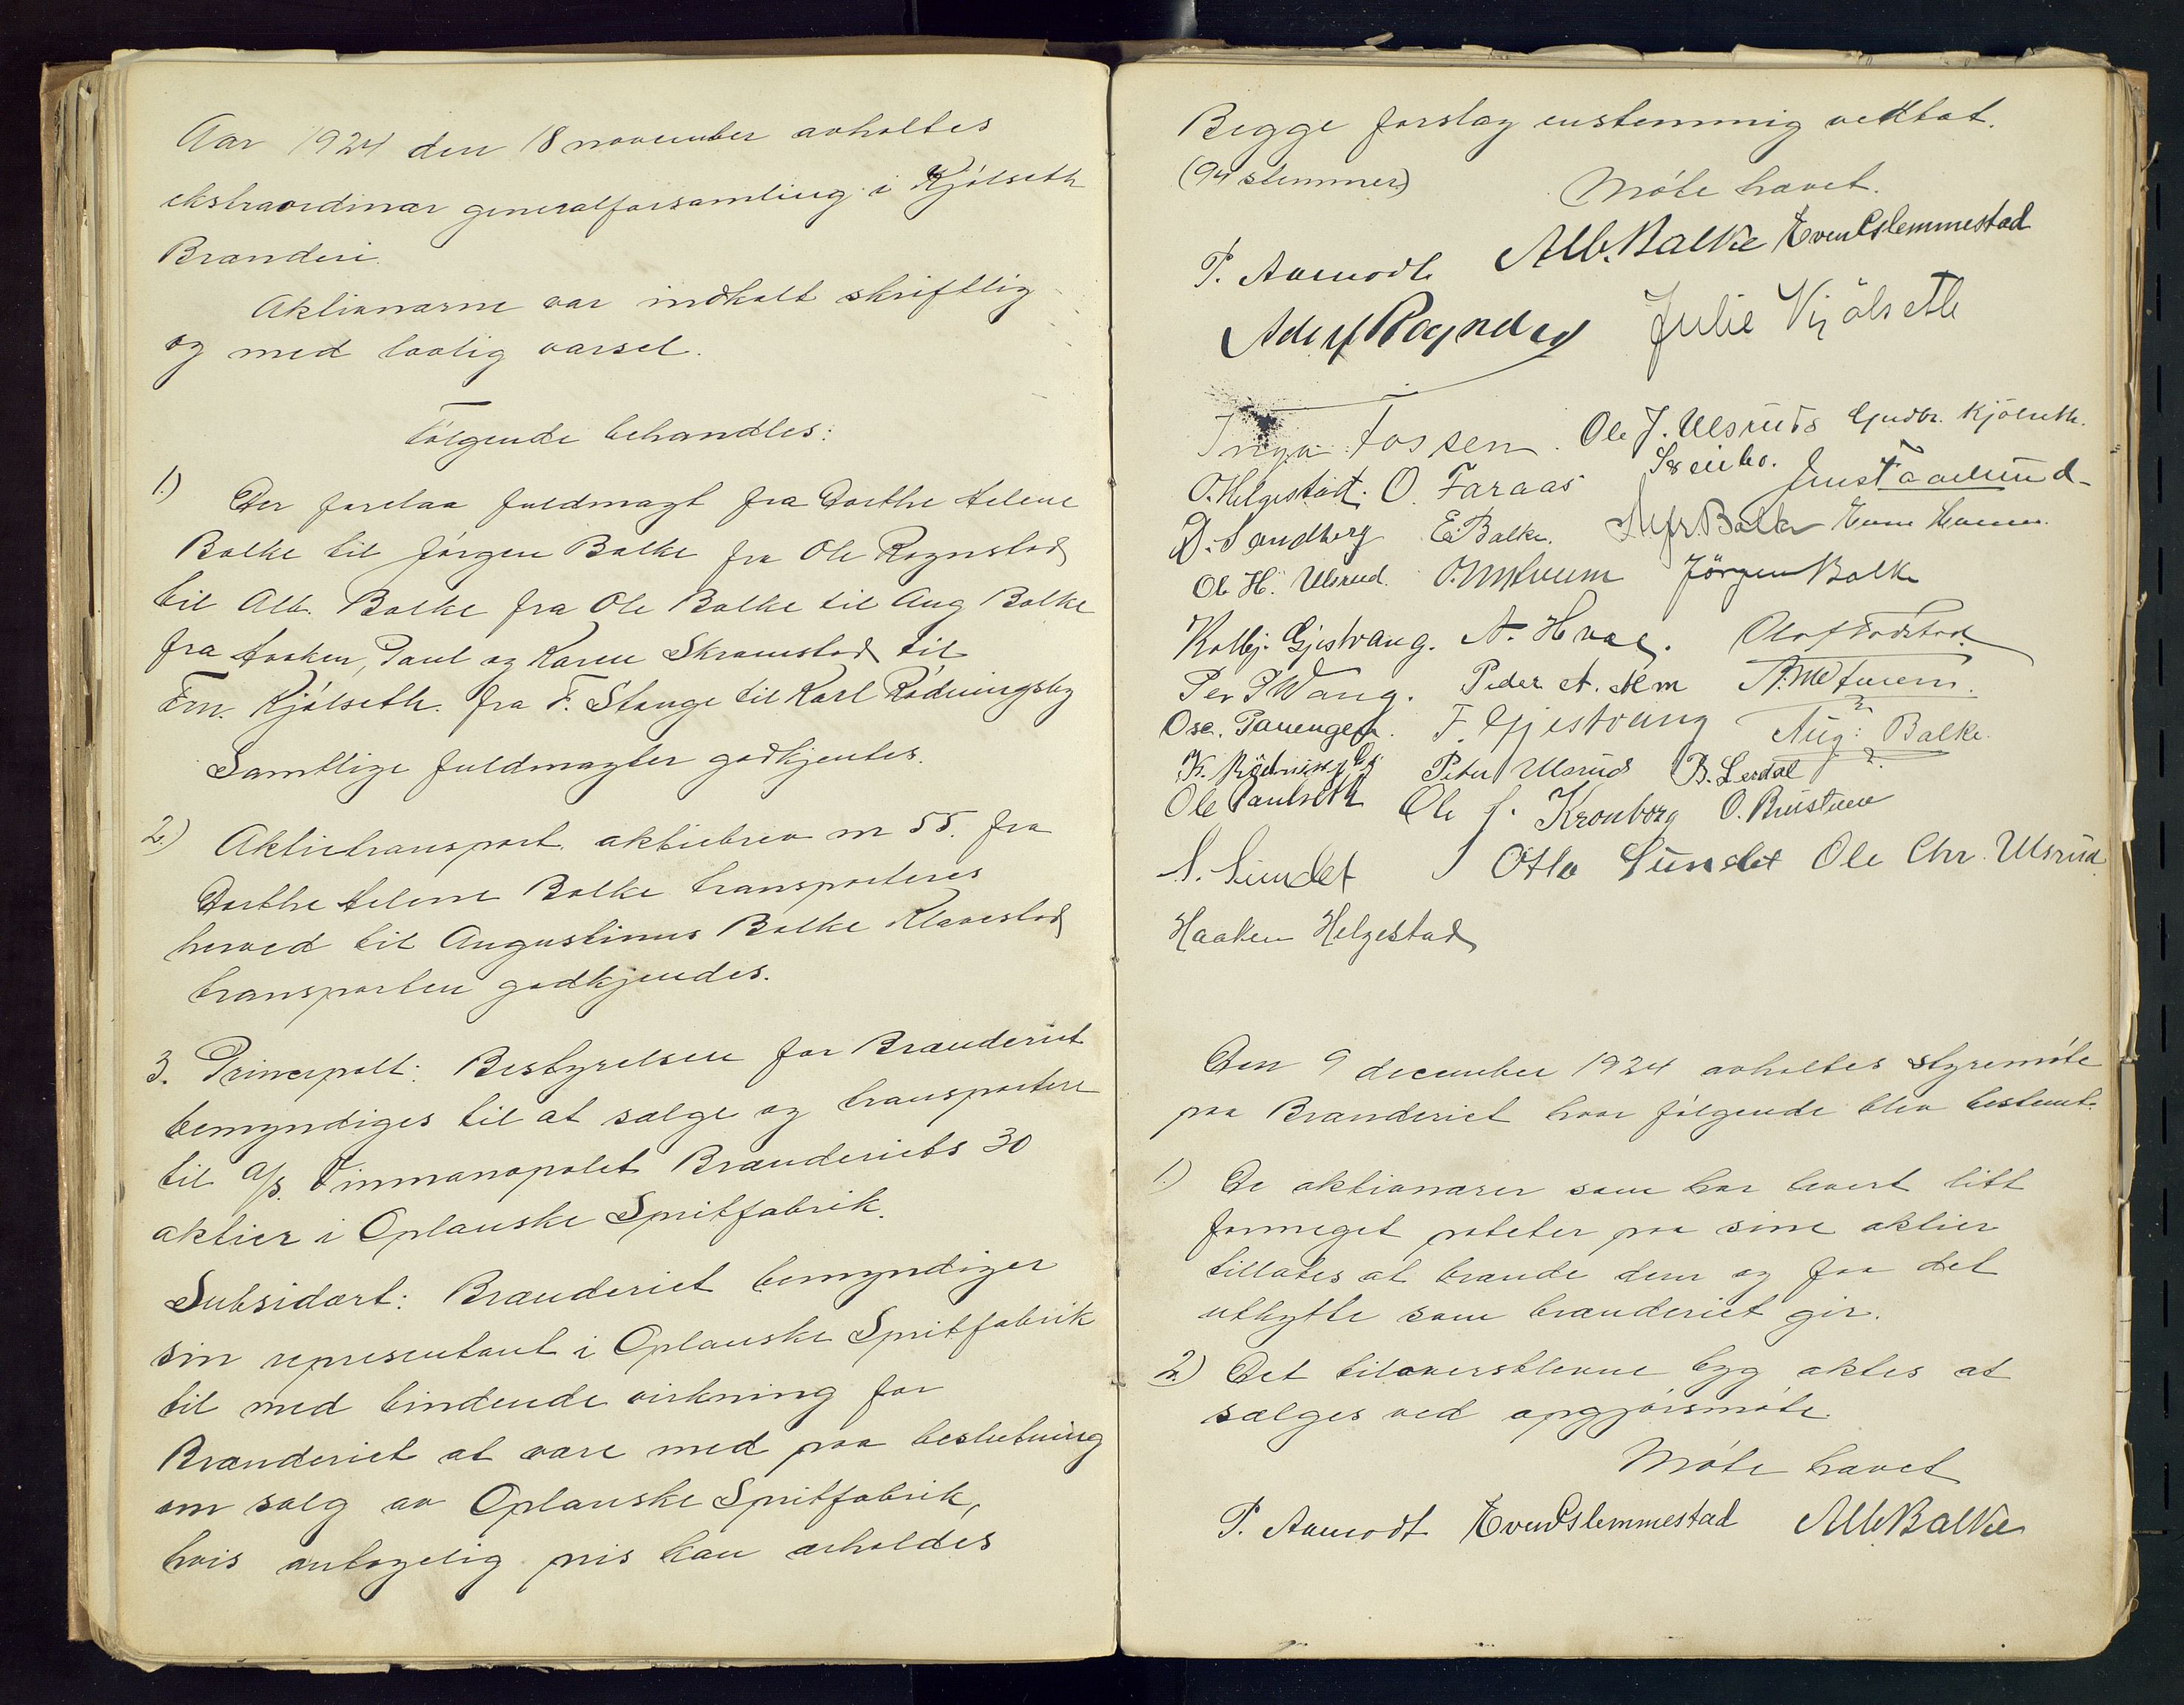 Aar 1924 den 18 november avholtes
ekstraordinær generalforsamling i Kjølseth
Brænderi.
Aktionærne var indkalt skriftlig
og med lovlig varsel.
Følgende behandles:
1.) Der forelaa fuldmagt fra Dorthe Helene
Balke til Jørgen Balke fra Ole Rognstad
til Alb. Balke fra Ole Balke til Aug Balke
fra Haaken, Paul og Karen Skramstad til
Ern. Kjølseth. fra F. Stange til Karl Rødningsby
Samtlige fuldmagter godkjentes.
2.) Aktietransport. aktiebrev nr 55. fra
Dorthe Helene Balke transporteres
herved til Augustinus Balke Klavestad
transporten godkjendes.
3. Principalt: Bestyrelsen for Brænderiet
bemyndiges til at sælge og transportere
til A/S. Vinmonopolet Brænderiets 30
aktier i Oplanske Spritfabrik.
Subsidært: Brænderiet bemyndiger
sin representant i Oplanske Spritfabrik
til med bindende virkning for
Brænderiet at være med paa beslutning
om salg av Oplanske Spritfabrik,
hvis antagelig pris kan erholdes
Begge forslag enstemmig vedtat.
(94 stemmer) Møte hævet.
P. Aamodt Alb. Balke Even Slemmestad
Adolf Rogndby Julie Kjölseth
Inga Fossen. Ole J. Ulsrud Gudbr. Kjølseth.
O. Helgestad. O. Faraas
D. Sandberg E. Balke. Alfr. Balke
Ole H. Ulsrud. Jörgen Balke
Kolbj. Gjestvang. N. Hval. Olaf Todstad
Per P Wang. Peder A. Alm
Osc. F. Gjestvang Aug. Balke.
K. Rødningsby Peter Ulsrud B. Lerdal
Ole Paulseth Ole J. Kronborg O. Rustuen
S. Sundet Otto Sundet Ole Chr. Ulsrud
Haaken Helgestad
Den 9 december 1924 avholtes styremøte
paa Brænderiet hvor følgende blev bestemt.
1.) De aktionærer som har levert litt
formeget poteter paa sine aktier
tillates at brænde dem og faa det
utbytte som brænderiet gir.
2.) Det tiloversblevne byg aktes at
sælges ved opgjørsmøte
Møte hævet
P. Aamodt Even Slemmestad Alb Balke